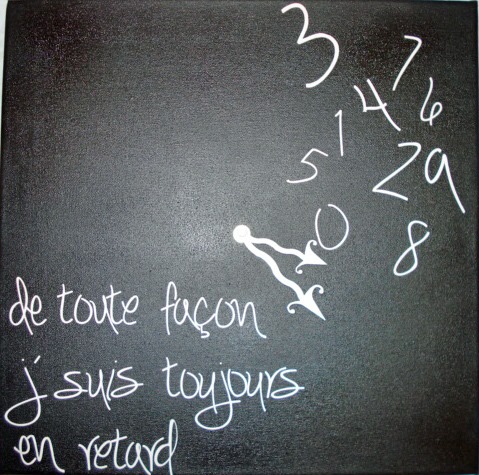 3
7
4 6
1
5 2 9
0
8
de toute façon
j' suis toujours
en retard